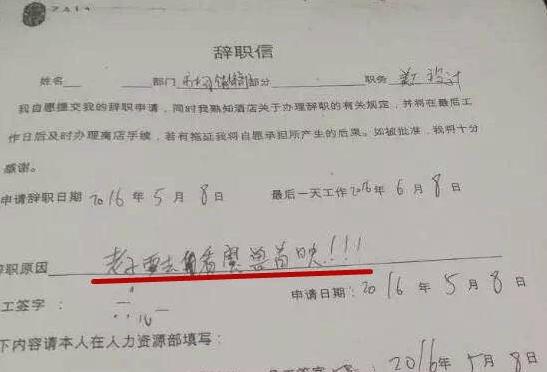 辞职信
姓名 部门 市场销售部分 职务 美工设计
我自愿提交我的辞职申请，同时我熟知酒店关于办理辞职的有关规定，并将在最后工
作日后及时办理离店手续，若有拖延我将自愿承担所产生的后果。如被批准，我将十分
感谢。
申请辞职日期 2016 年 5 月 8 日 最后一天工作 2016 年 6 月 8 日
辞职原因 老子要去看魔兽首映!!!
工签字： 申请日期：2016 年 5 月 8 日
下内容请本人在人力资源部填写：
2016年 5月 8日